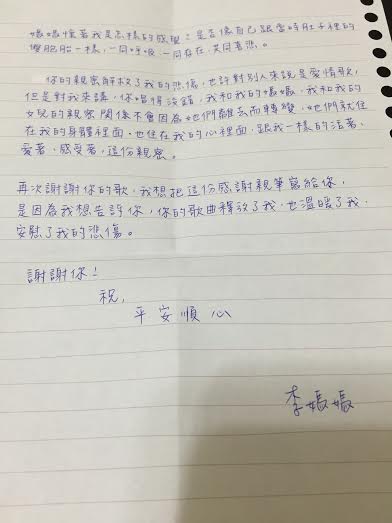 媽媽懷著我是怎樣的感覺？是否像自己跟當時肚子裡的
雙胞胎一樣，一同呼吸、一同存在，共同喜悲。
你的親密解救了我的悲傷，也許對別人來說是愛情歌，
但是對我來講，你唱得沒錯，我和我的媽媽、我和我的
女兒的親密關係不會因為她們離去而轉變，她們就住
在我的身體裡面、也住在我的心裡面，跟我一樣的活著、
愛著、感受著，這份親密。
再次謝謝你的歌，我想把這份感謝親筆寫給你，
是因為我想告訴你，你的歌曲釋放了我，也溫暖了我，
安慰了我的悲傷。
謝謝你！
祝，
平安順心
李媽媽